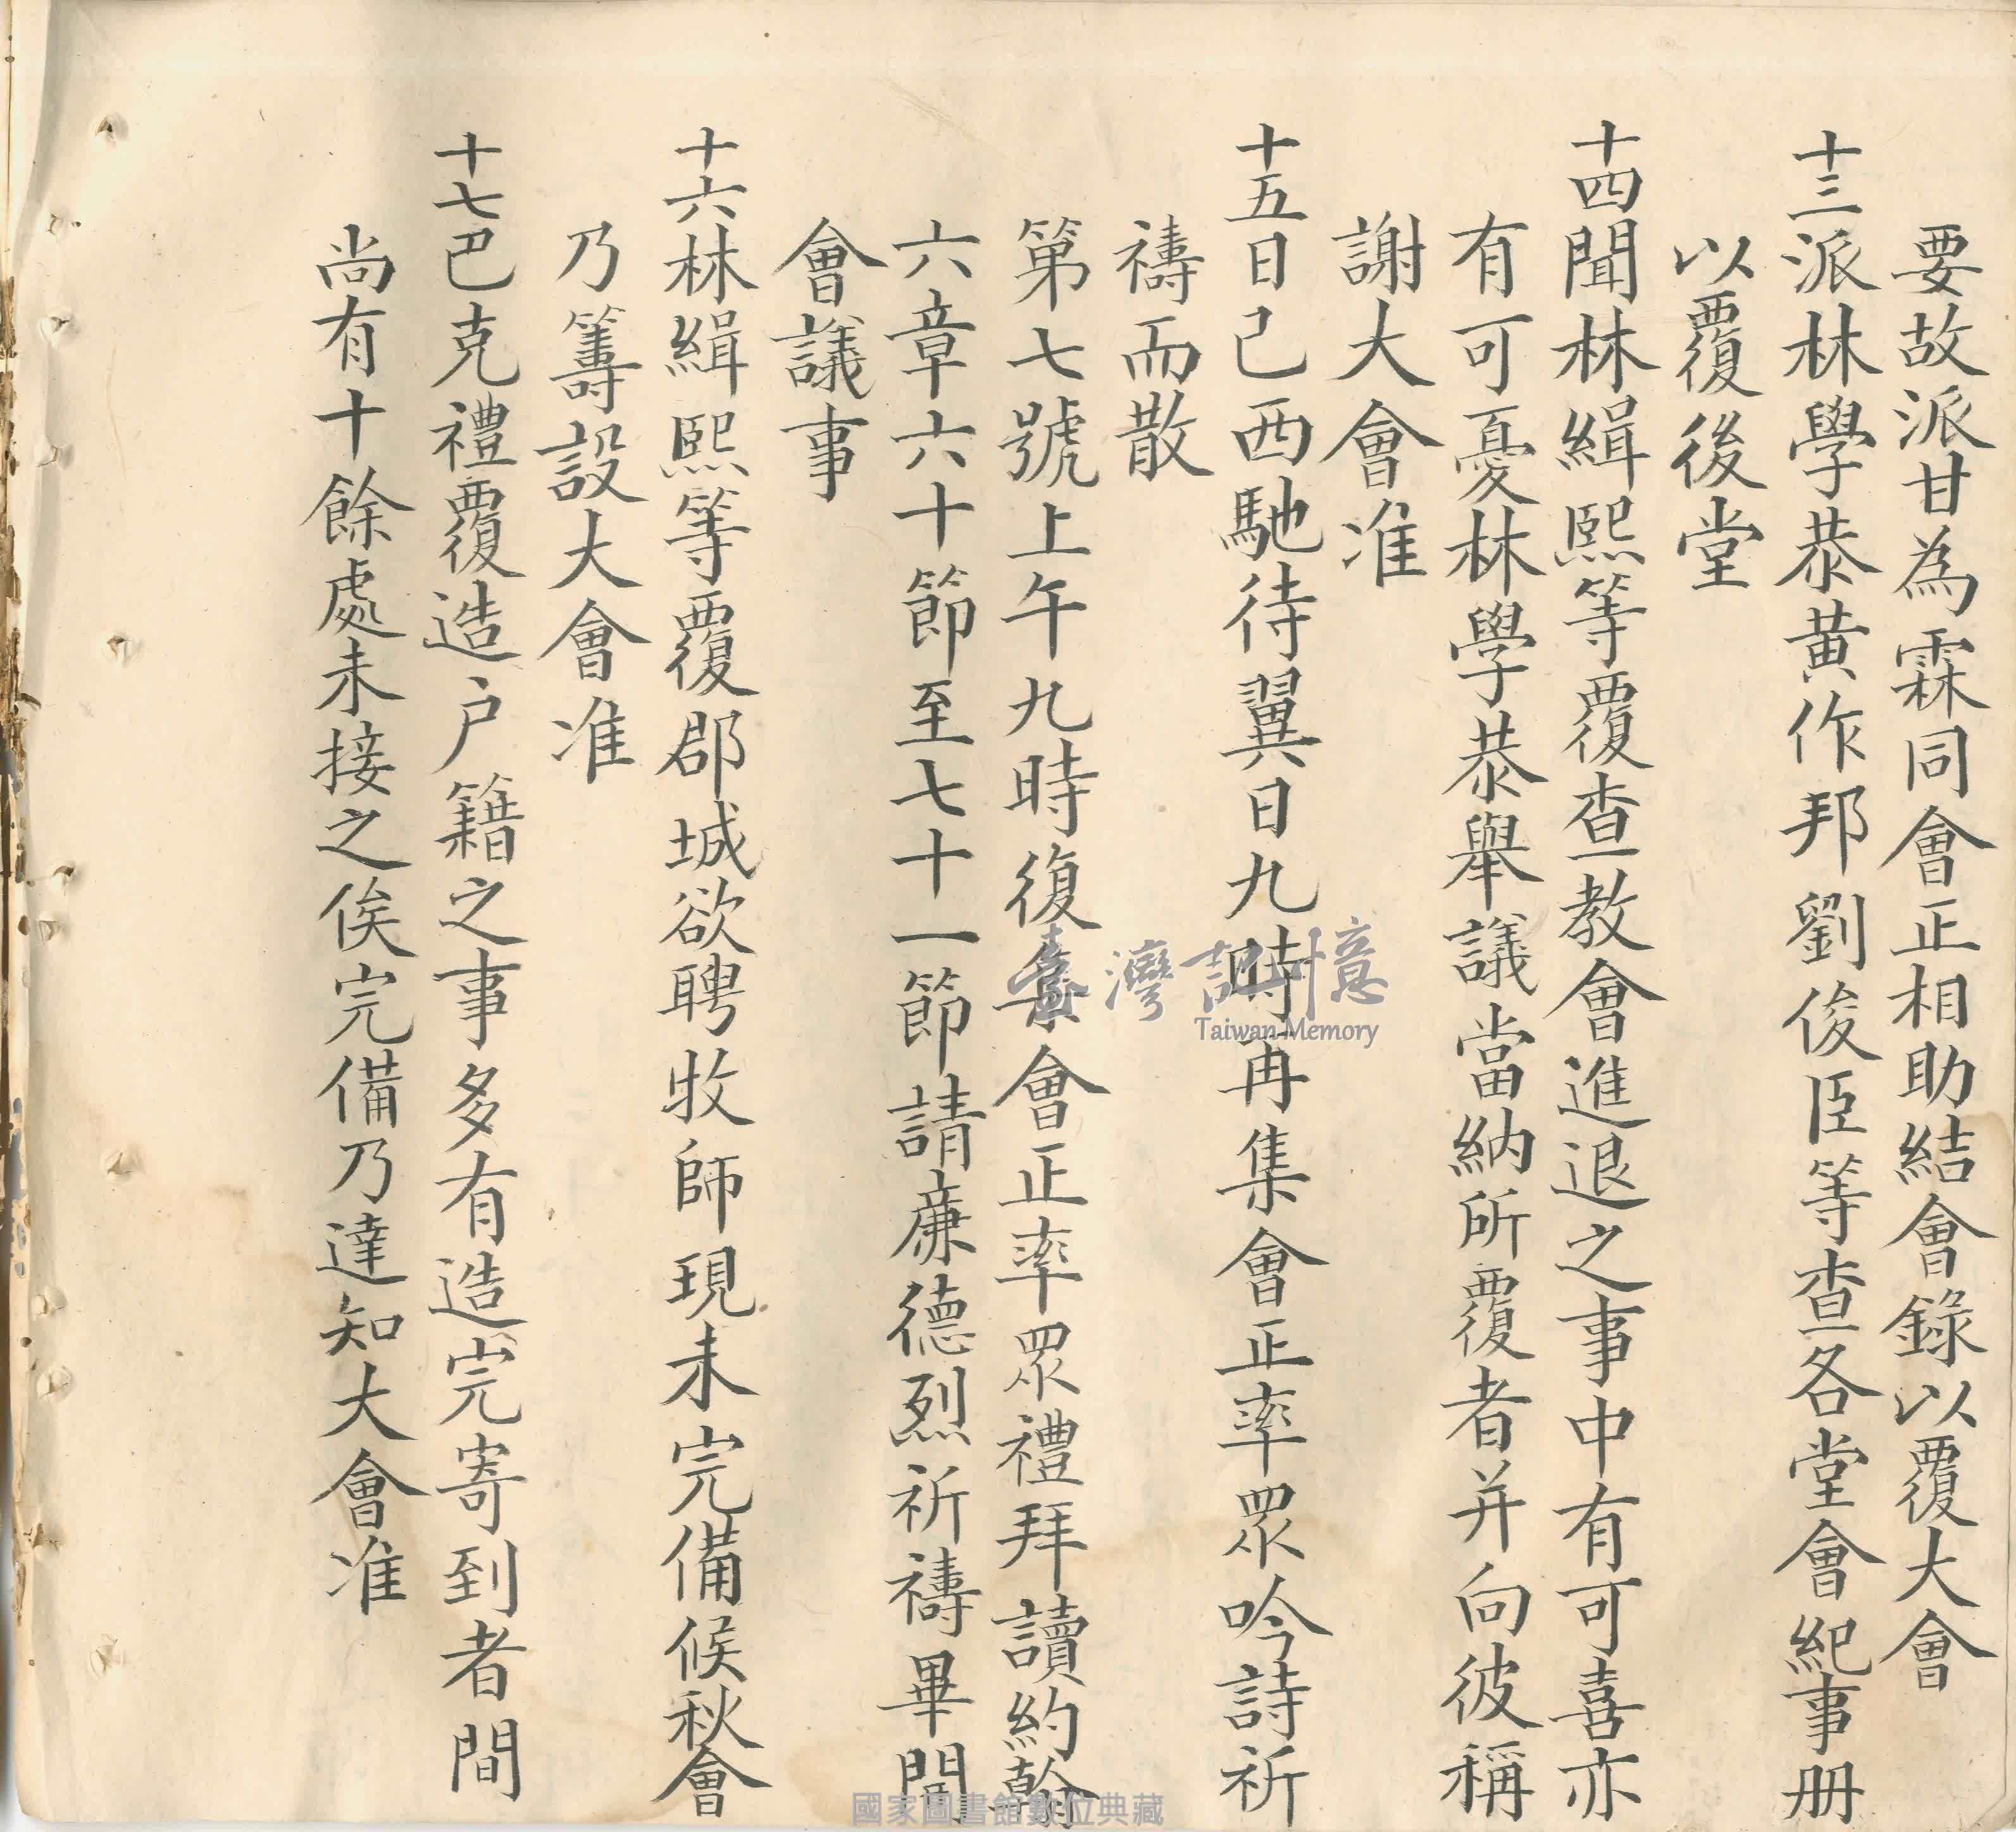 要故派甘為霖同會正相助結會錄以覆大會
十三派林學恭黃作邦劉俊臣等查各堂會紀事册
以覆後堂
十四聞林緝熙等覆查教會進退之事中有可喜亦
有可憂林學恭舉議當納所覆者并向彼稱
謝大會准
十五日已西馳待翼日九時再集會正率眾吟詩祈
禱而散
第七號上午九時復集會正率眾禮拜讀約翰
六章六十節至七十一節請廉德烈祈禱畢開
會議事
十六林緝熙等覆郡城欲聘牧師現未完備候秋會
乃籌設大會准
十七巴克禮覆造户籍之事多有造完寄到者間
尚有十餘處未接之俟完備乃達知大會准
臺灣記憶
Taiwan Memory
國家圖書館數位典藏